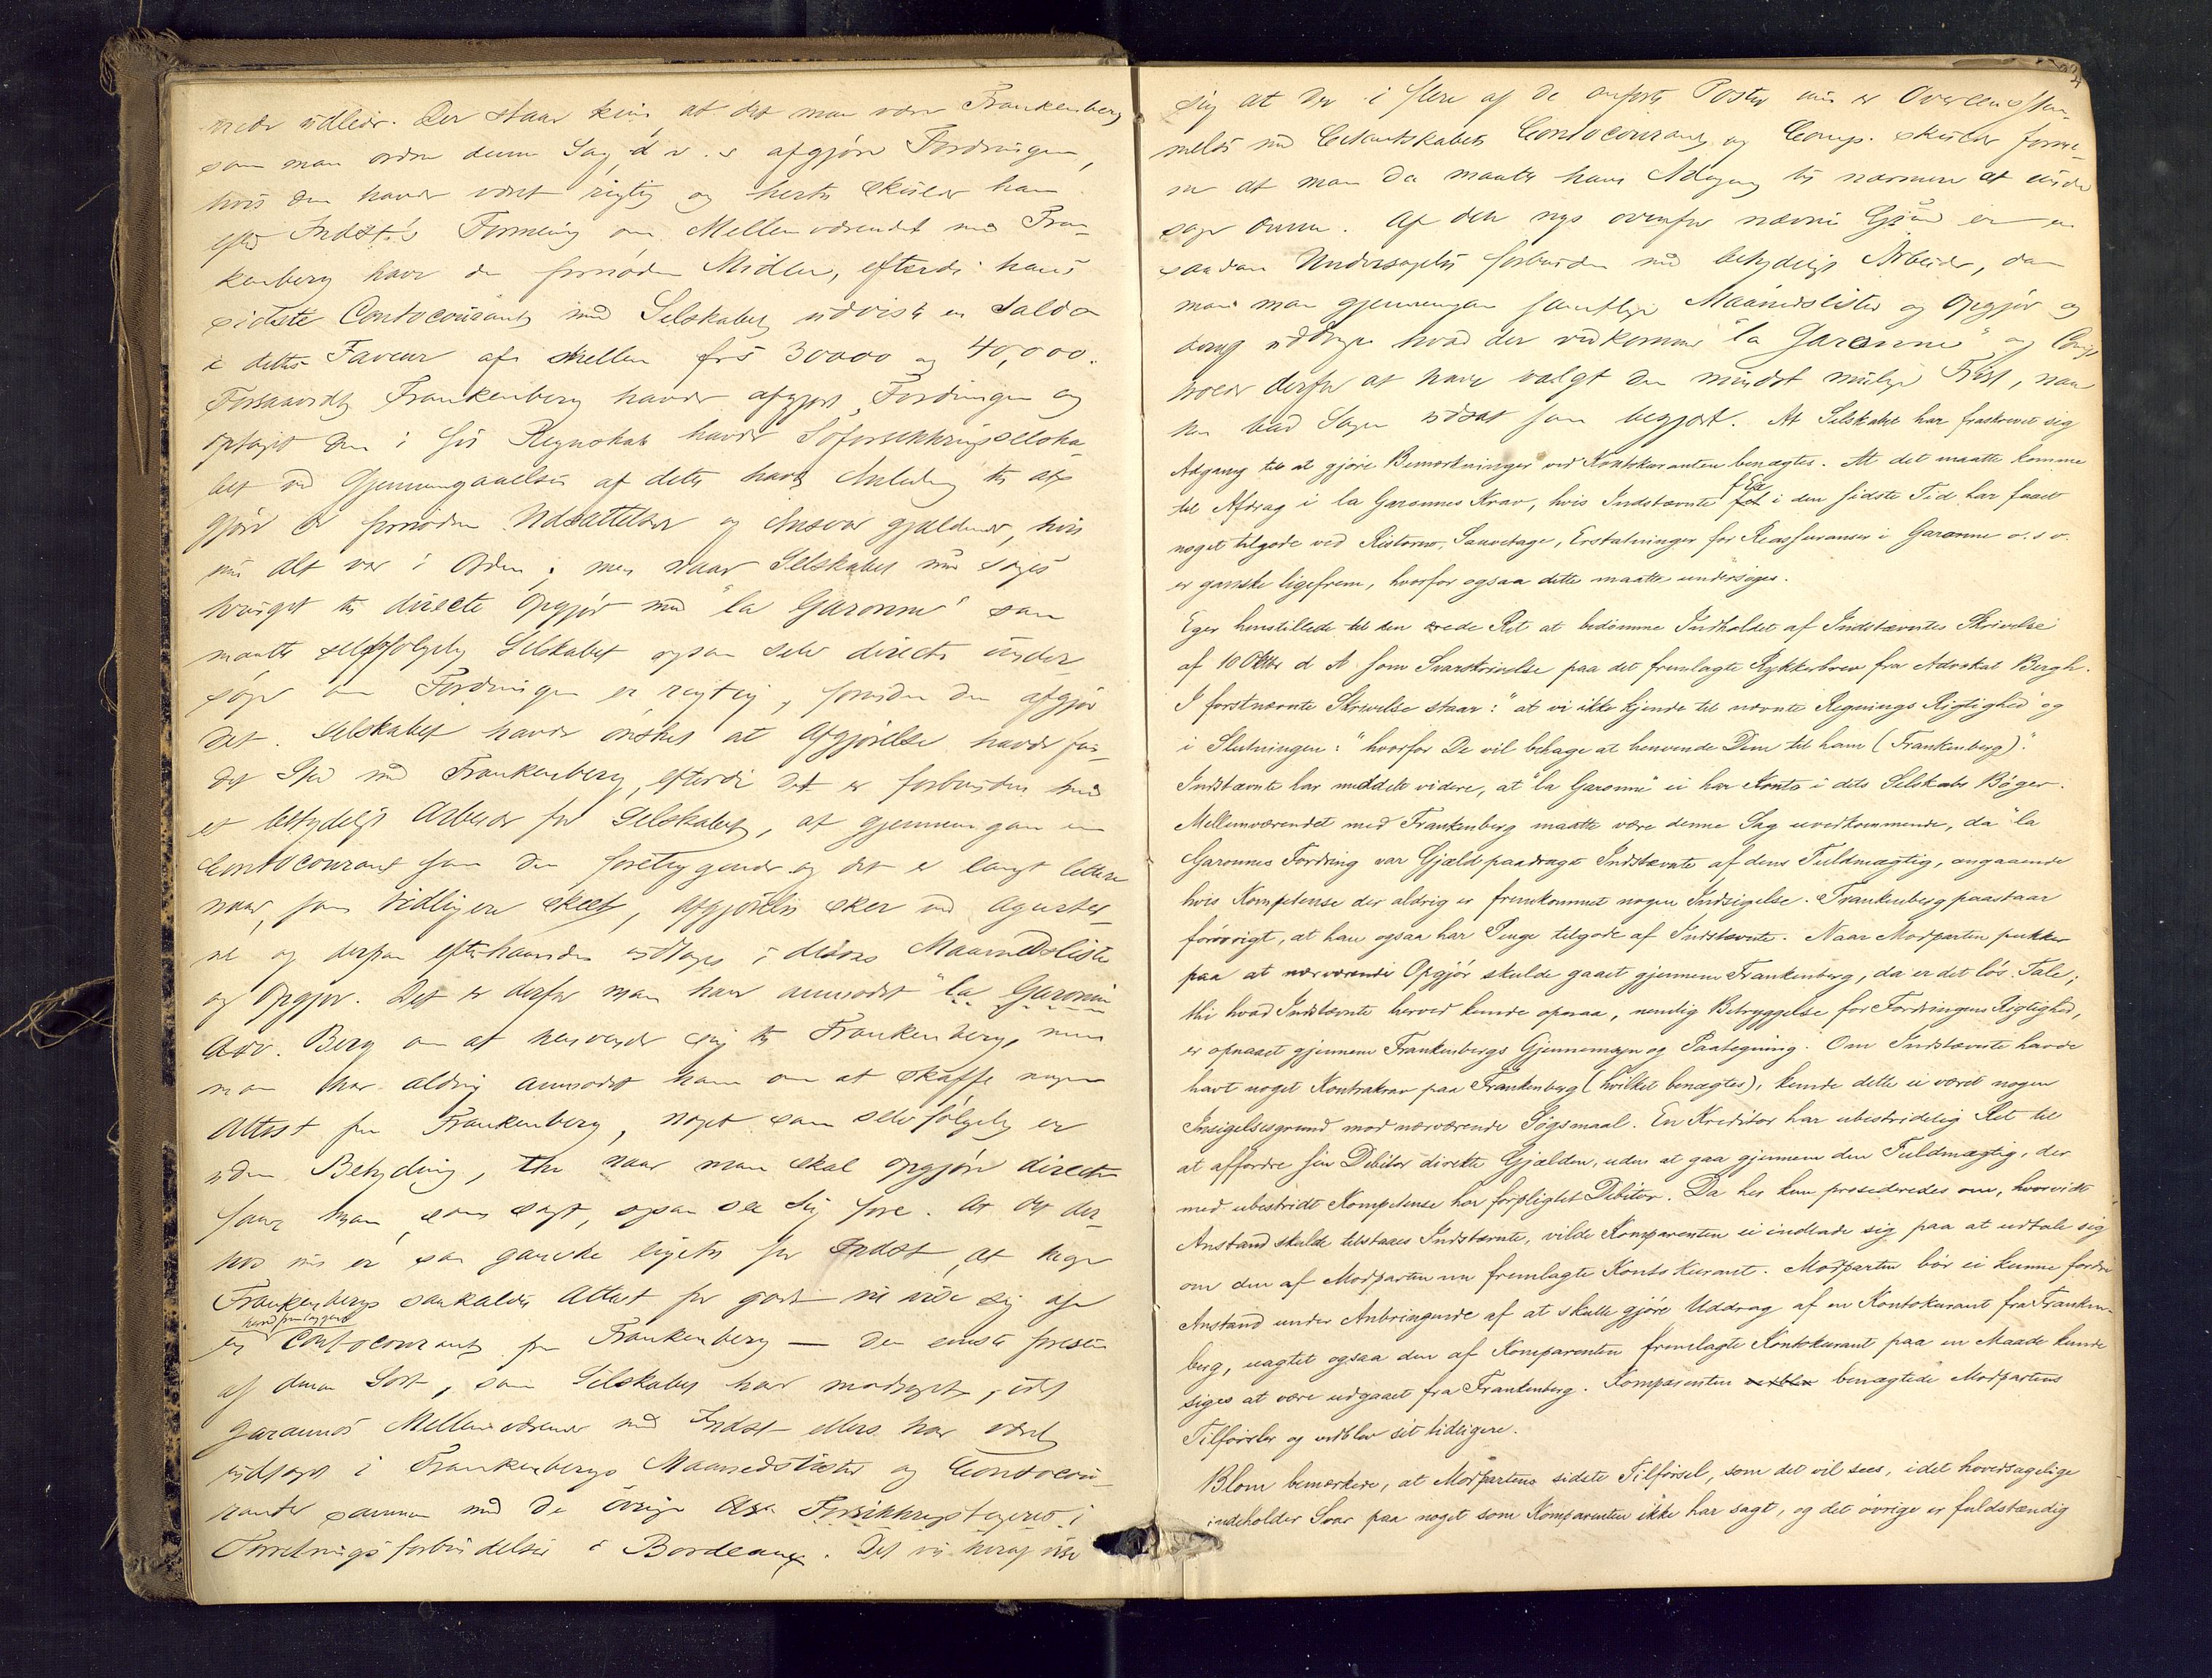 udleder. Der staar kun, at det maa være Frankenberg
som maa ordne denne Sag, d. v. s. afgjøre Fordringen,
hvis den havde været rigtig og hertil skulde han
efter Indst's Formening om Mellemværendet med Fran-
kenberg have de fornødne Midler, efterdi hans
sidste Contocourant med Selskabet udviste en Saldo
i dettes Faveur af mellem frs 30000 og 40,000.
Forsaavidt Frankenberg havde afgjort Fordringen og
optaget den i sit Regnskab havde Søforsikkringsselska-
bet ved Gjennemgaaelse af dette havt Anledning til at
gjøre de fornødne Udsættelser og Ansvar gjældende, hvis
ei alt var i Orden; men naar Selskabet nu søges
tvunget til directe Opgjør med "la Garonne" saa
maatte selvfølgelig Selskabet ogsaa selv directe under-
søge om Fordringen er rigtig, forinden den afgjør
det. Selskabet havde ønsket at Afgjørelse havde fun-
det Sted med Frankenberg, efterdi det er forbunden med
et betydeligt Arbeide for Selskabet, at gjennemgaa en
Contocourant som den foreliggende og det er langt lettere
naar, som tidligere skeet, Afgjørelse sker ved Agenter-
ne og derpaa efterhaanden optages i disses Maanedslister
og Opgjør. Det er derfor man har anmodet "la Garonne"
Adv. Berg om at henvende sig til Frankenberg, men
man har aldrig anmodet ham om at skaffe nogen
Attest fra Frankenberg, noget som selvfølgelig er
uden Betydning, thi naar man skal opgjøre directe
faar man, som sagt, ogsaa see sig fore. At det der-
hos ei er saa ganske ligetil for Indst, at tage
Frankenbergs saakaldte Attest for god vil vise sig af
herved fremlæggende
en Contocourant fra Frankenberg — den eneste
af denne Sort, som Selskabet har modtaget, idet
Garonnes Mellemværende med Indst ellers har været
indtaget i Frankenbergs Maanedslister og Contocou-
ranter sammen med de øvrige Forsikkringstageres i
Forretningsforbindelse i Bordeaux. Det vil heraf vise
sig at der i flere af de anførte Poster ei er Overensstem-
melse med Contocourant, og Comp. skulde forme-
ne at man da maatte have Adgang til nærmere at under-
søge denne. Af den nys ovenfor nævnte Grund er en
saadan Undersøgelse forbunden med betydeligt Arbeide, da
man maa gjennemgaa samtlige Maanedslister og Opgjør og
deraf uddrage hvad der vedkommer "la Garonne" og Comp.
troede derfor at have valgt den mindst mulige Frist, naar
han bad Sagen udsat som begjært. At Selskabet har fraskrevet sig
Adgang til at gjøre Bemærkninger ved Kontokuranten benægtes. At det maatte komme
til Afdrag i la Garonnes Krav, hvis Indstævnte f Ex i den sidste Tid har faaet
noget tilgode ved Ristorno, Sauvetage, Erstatninger for Reassuranser i Garonne o. s v.
er ganske ligefrem, hvorfor ogsaa dette maatte undersøges.
Eger henstillede til den ærede Ret at bedømme Indholdet af Indstævntes Skrivelse
af 10 Oktbr d A som Svarskrivelse paa det fremlagte Rykkerbrev fra Advokat Bergh.
I førstnævnte Skrivelse staar: "at vi ikke kjende til nævnte Regnings Rigtighed" og
i Slutningen: "hvorfor De vil behage at henvende Dem til ham (Frankenberg)."
Indstævnte har meddelt videre, at "la Garonne" ei har Konto i dets Selskabs Bøger.
Mellemværendet med Frankenberg maatte være denne Sag uvedkommende, da "la
Garonnes Fordring var Gjæld paadraget Indstævnte af dens Fuldmægtig, angaaende
hvis Kompetense der aldrig er fremkommet nogen Indsigelse. Frankenberg paastaar
forøvrigt, at han ogsaa har Penge tilgode af Indstævnte. Naar Modparten pukker
paa at nærværende Opgjør skulde gaaet gjennem Frankenberg, da er det løs Tale;
thi hvad Indstævnte herved kunde opnaa, nemlig Betryggelse for Fordringens Rigtighed,
er opnaaet gjennem Frankenbergs Gjennemsyn og Paategning. Om Indstævnte havde
havt noget Kontrakrav paa Frankenberg (hvilket benægtes), kunde dette ei været nogen
Insigelsesgrund mod nærværende Søgsmaal. En Kreditor har ubestridelig Ret til
at affordre sin Debitor direkte Gjælden, uden at gaa gjennem den Fuldmægtig, der
med ubestridt Kompetense har forpligtet Debitor. Da her kun prosederedes om, hvorvidt
Anstand skulde tilstaaes Indstævnte, vilde Komparenten ei indlade sig paa at udtale sig
om den af Modparten nu fremlagte Kontokurant. Modparten bør ei kunne fordre
Anstand under Anbringende af at skulle gjøre Uddrag af en Kontokurant fra Franken-
berg, uagtet ogsaa den af Komparenten fremlagte Kontokurant paa en Maade kunde
siges at være udgaaet fra Frankenberg. Komparenten benægtede Modpartens
Tilførsler og vedblev sit tidligere.
Blom bemærkede, at Modpartens sidste Tilførsel, som det vil sees, i det hovedsagelige
indeholder Svar paa noget som Komparenten ikke har sagt, og det øvrige er fuldstændig